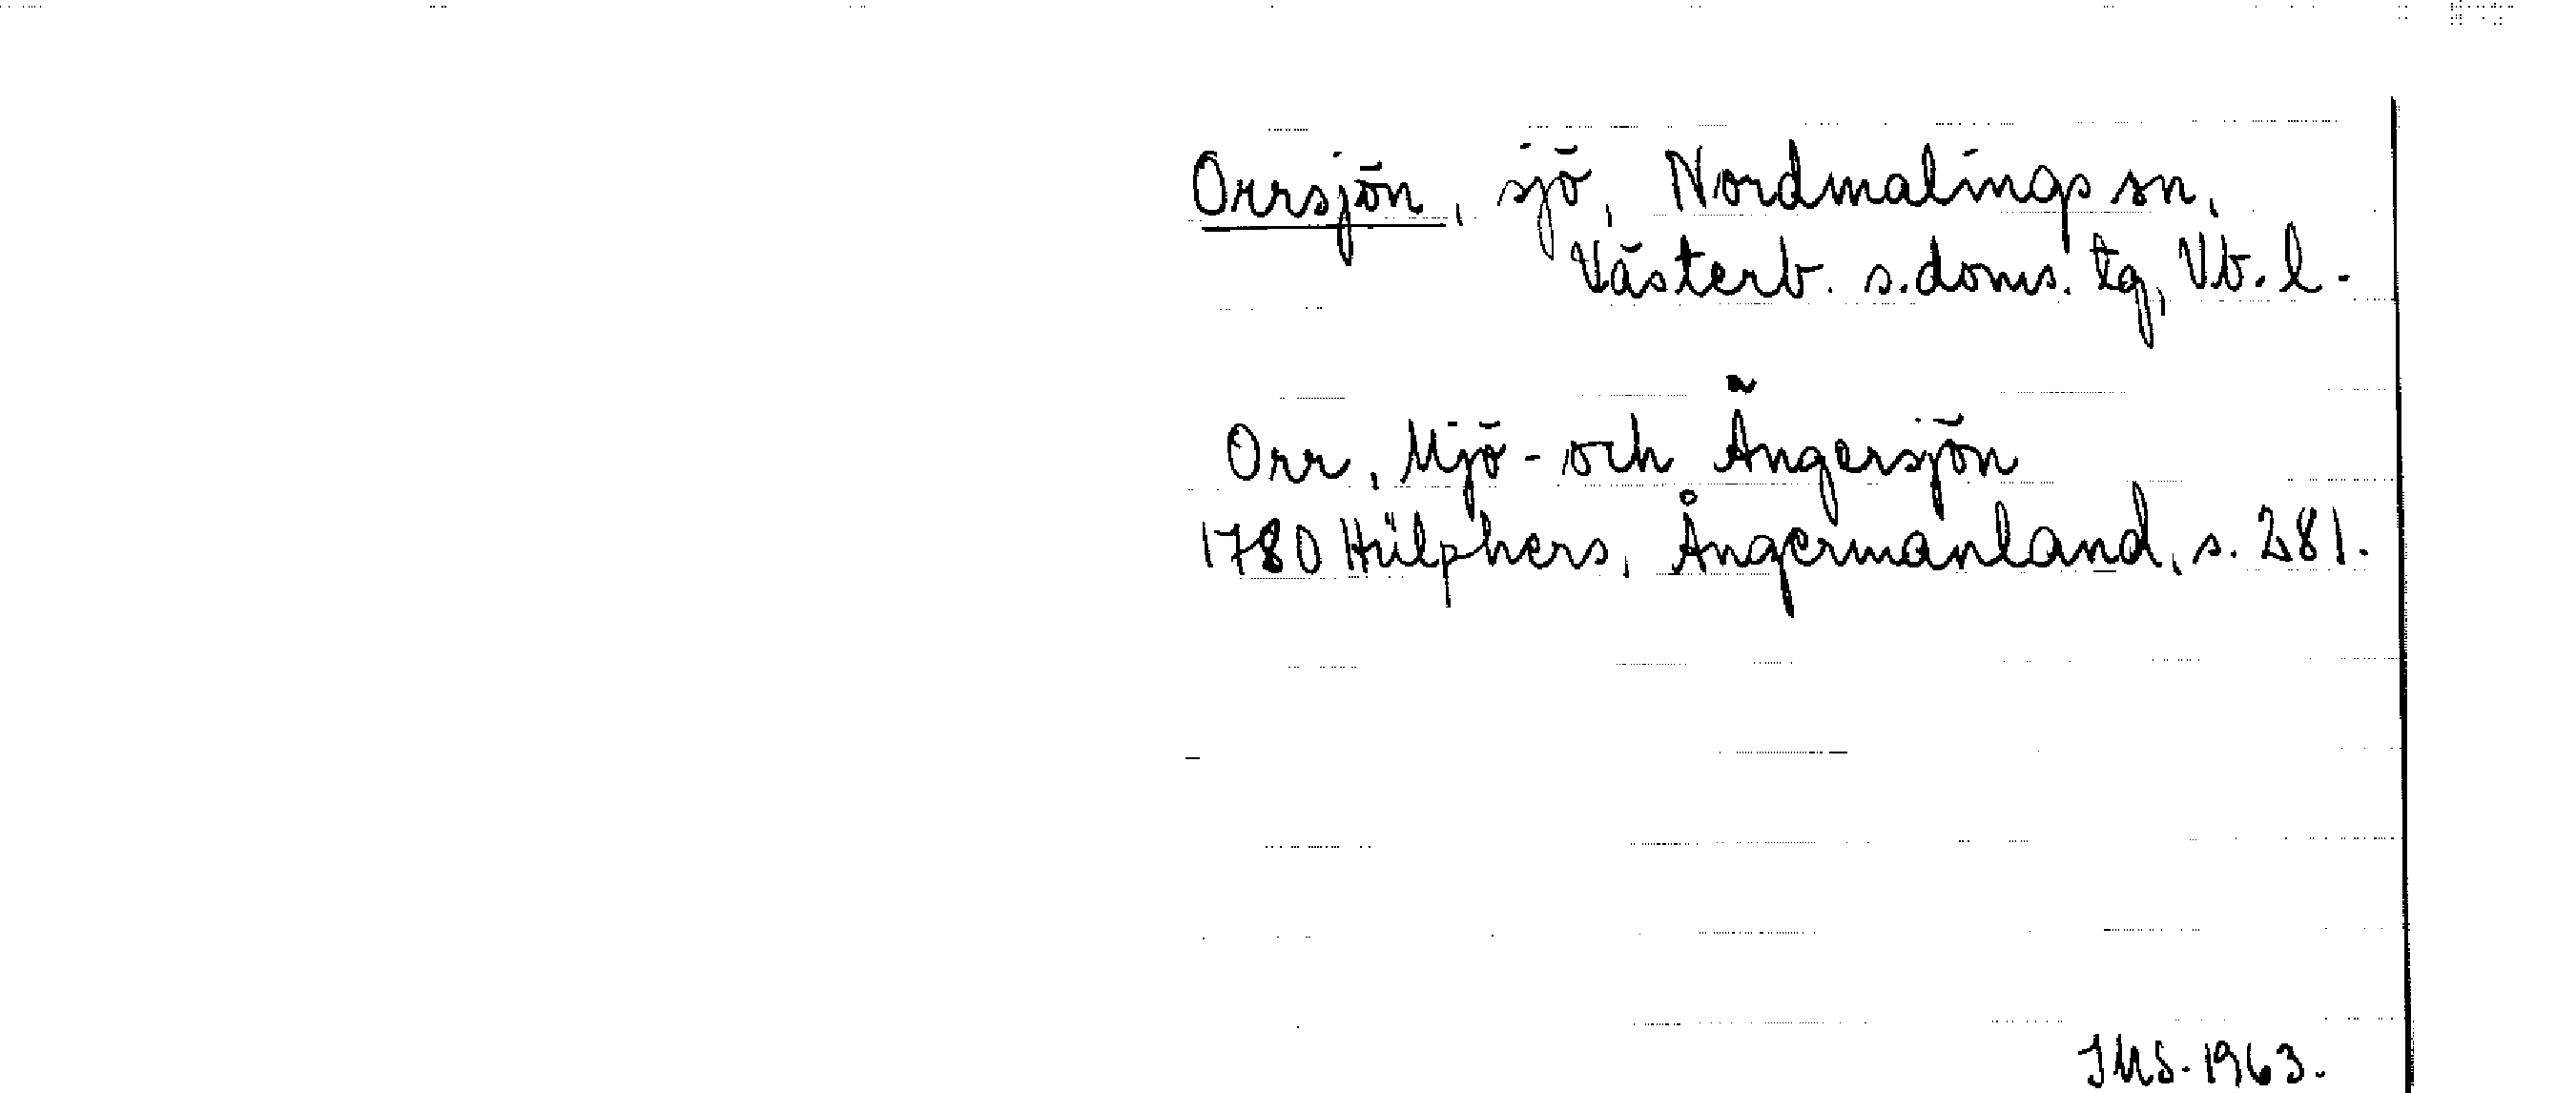 Orrsjön, sjö, Nordmalings sn,
Västerb. s. doms. tg, Vb. l.
Orr, Mjö- och Ängersjön
1780 Hülphers, Ångermanland, s. 281.
JMS. 1963.